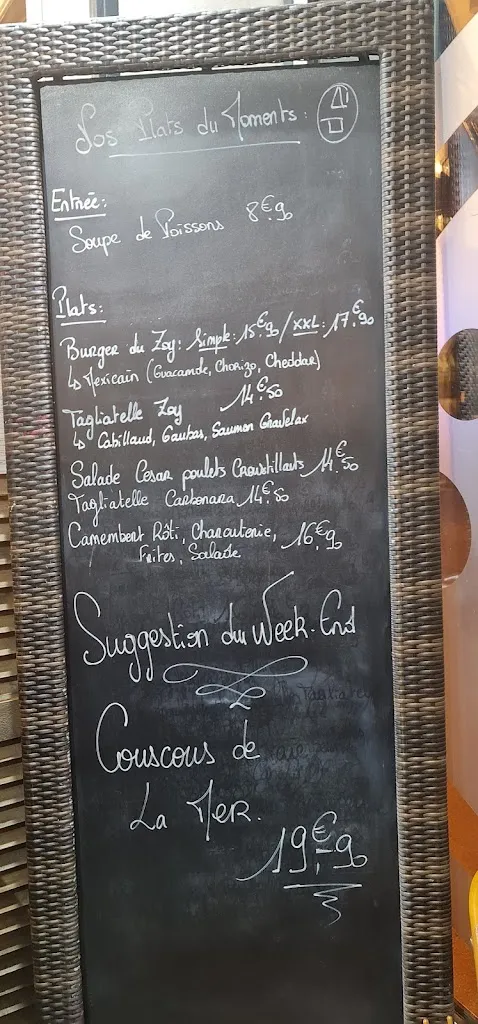 Nos Plats du Moments:
Entrée:
Soupe de Poissons 8€90
Plats:
Burger du Zay: Simple: 15€90 / XXL: 17€90
↳ Mexicain (Guacamole, Chorizo, Cheddar)
Tagliatelle Zay 14€50
↳ Cabillaud, Gambas, Saumon Gravelax
Salade Cesar poulets Croustillants 14€50
Tagliatelle Carbonara 14€50
Camembert Rôti, Charcuterie, 16€90
Frites, Salade
Suggestion du Week-End
Couscous de
La Mer.
19€90